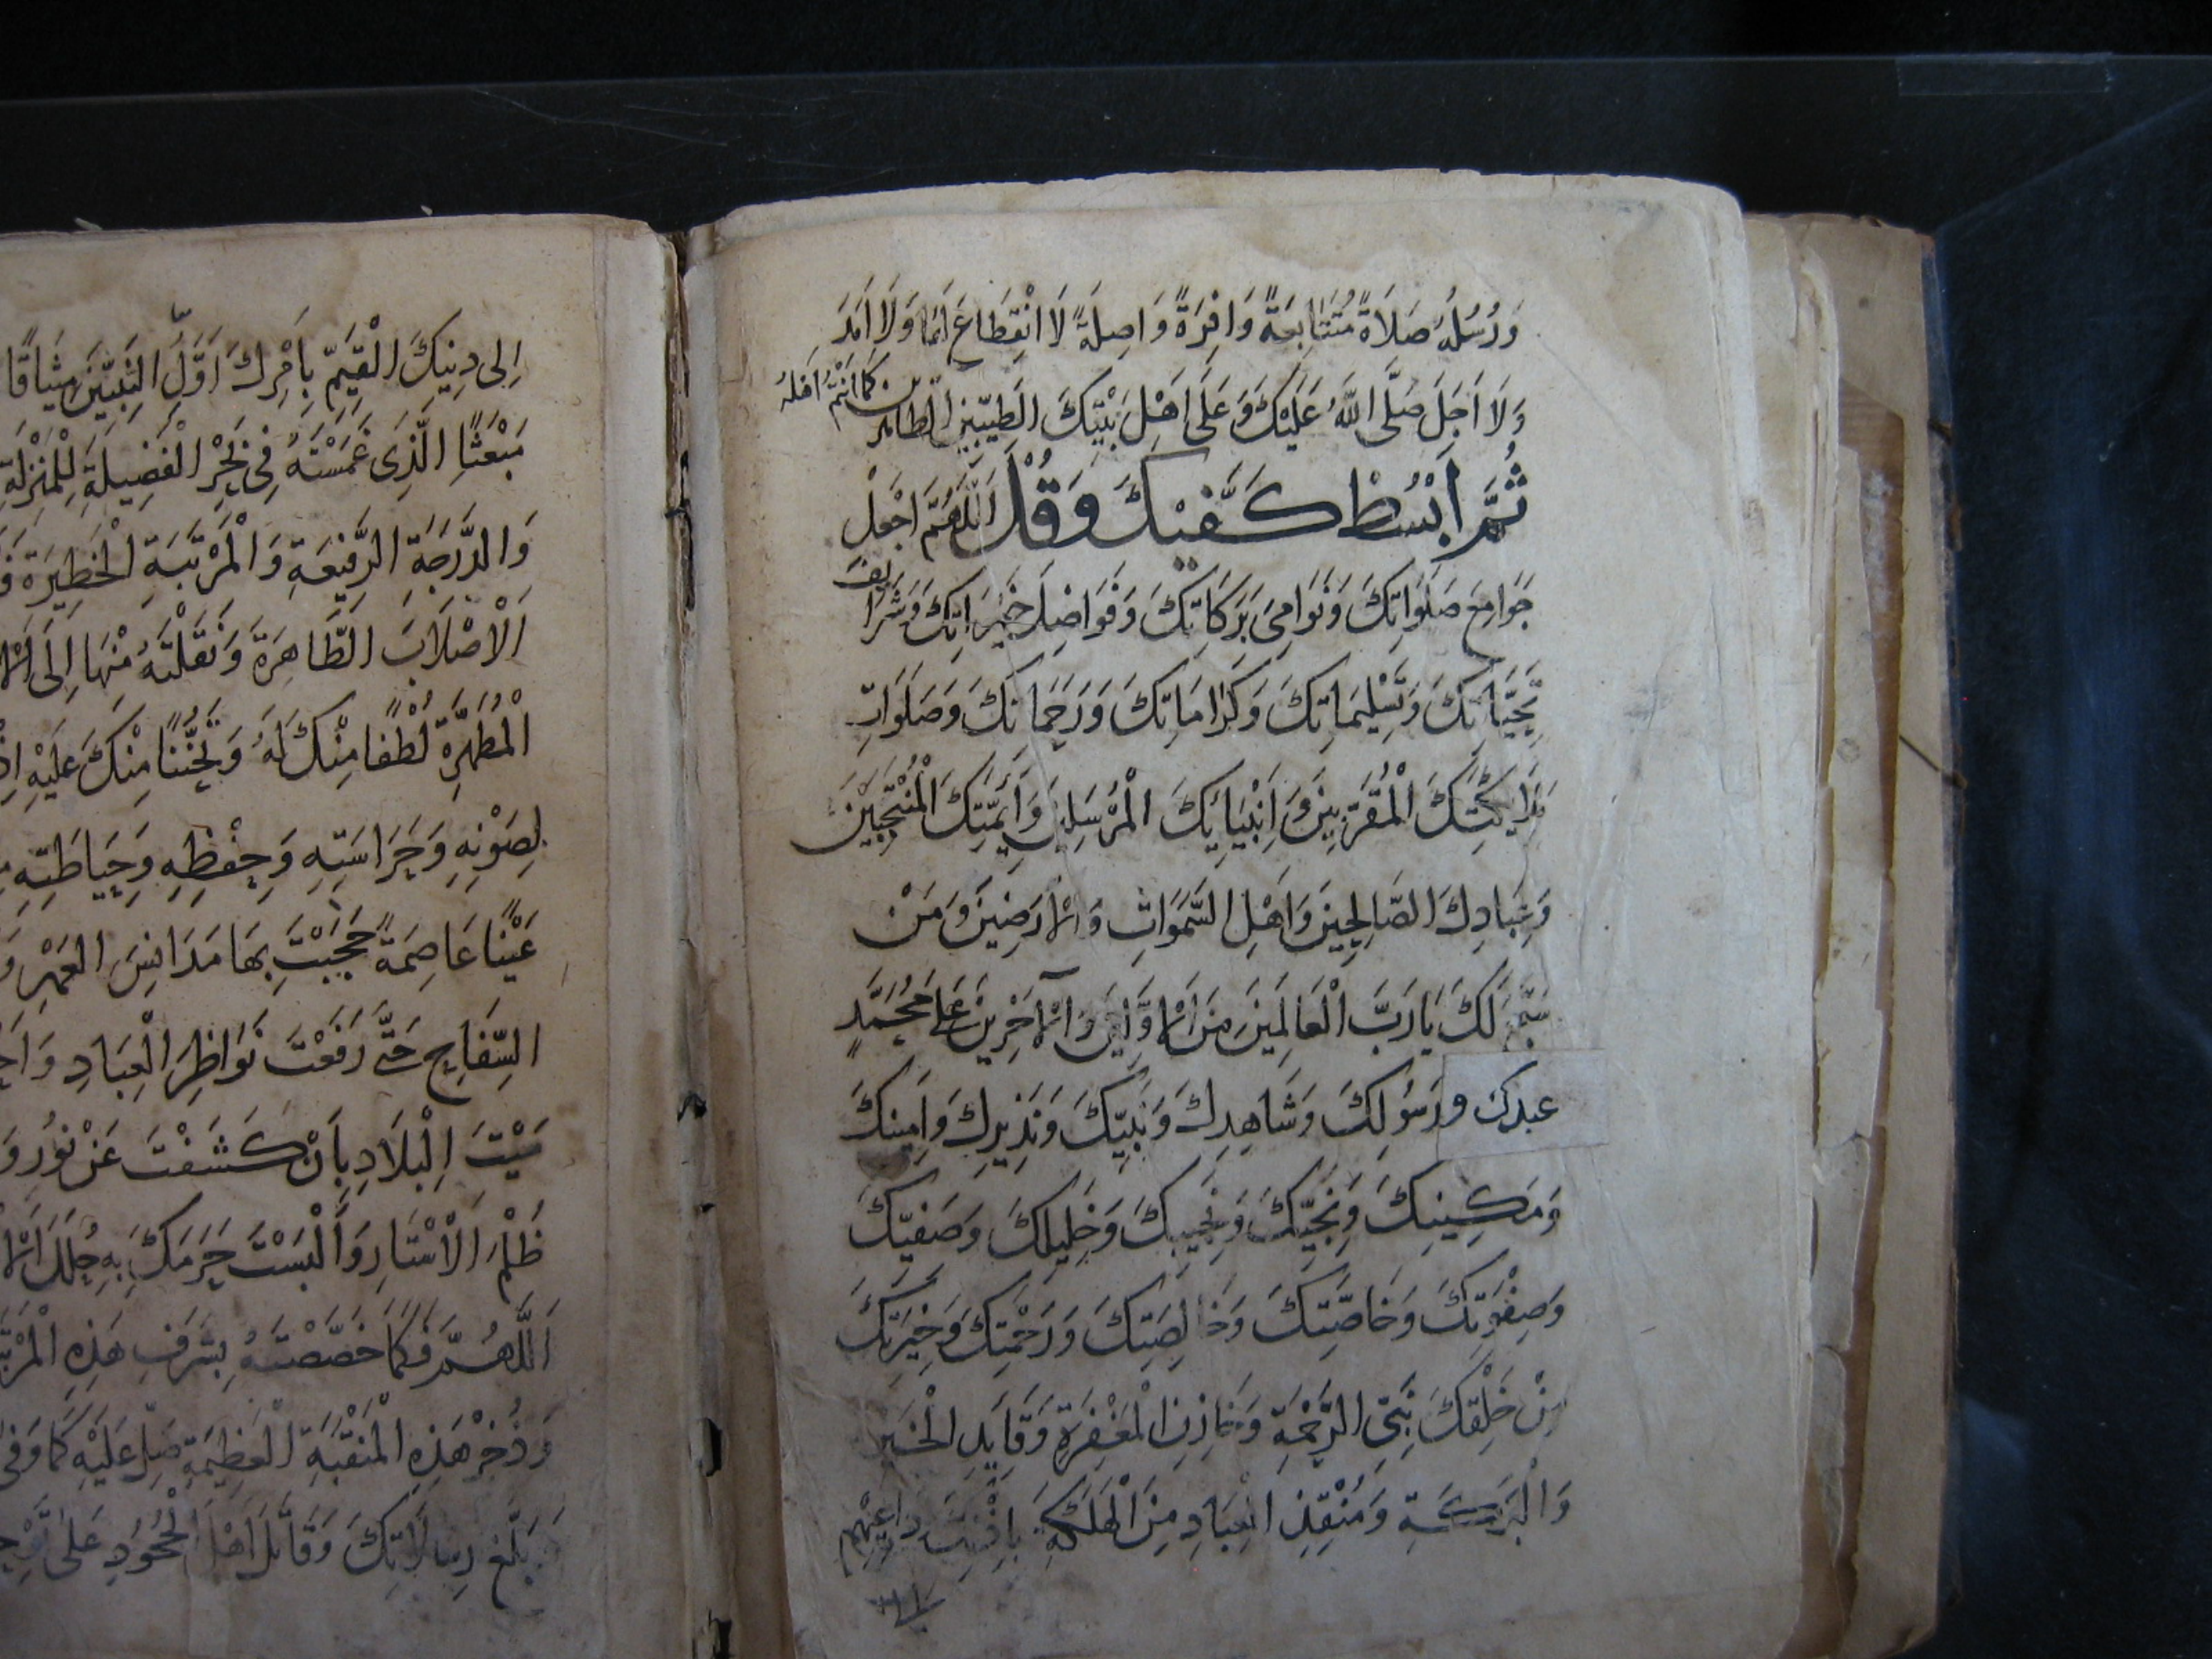 وَرُسُلُهُ صَلَاةً مُتَتَابِعَةً وَافِرَةً وَاصِلَةً لَا انْقِطَاعَ لَهَا وَلَا اَمَدَ
وَلَا اَجَلَ صَلَّى اللَّهُ عَلَيْكَ وَعَلَى اَهْلِ بَيْتِكَ الطَّيِّبِينَ الطَّاهِرِينَ كَمَا اَنْتُمْ اَهْلُهُ
ثُمَّ ابْسُطْ كَفَّيْكَ وَقُلْ اَللَّهُمَّ اجْعَلْ
جَوَامِعَ صَلَوَاتِكَ وَنَوَامِىَ بَرَكَاتِكَ وَفَوَاضِلَ خَيْرَاتِكَ وَشَرَايِفَ
تَحِيَّاتِكَ وَتَسْلِيمَاتِكَ وَكَرَامَاتِكَ وَرَحَمَاتِكَ وَصَلَوَاتِ
مَلَايِكَتِكَ الْمُقَرَّبِينَ وَاَنْبِيَايِكَ الْمُرْسَلِينَ وَاَيِمَّتِكَ الْمُنْتَجَبِينَ
وَعِبَادِكَ الصَّالِحِينَ وَاَهْلِ السَّمَوَاتِ وَالْاَرَضِينَ وَمَنْ
سَبَّحَ لَكَ يَا رَبَّ الْعَالَمِينَ مِنَ الْاَوَّلِينَ وَالْآخِرِينَ عَلَى مُحَمَّدٍ
عبدك ورَسُولِكَ وَشَاهِدِكَ وَنَبِيِّكَ وَنَذِيرِكَ وَاَمِينِكَ
وَمَكِينِكَ وَنَجِيِّكَ وَنَجِيبِكَ وَخَلِيلِكَ وَصَفِيِّكَ
وَصِفْوَتِكَ وَخَاصَّتِكَ وَخَالِصَتِكَ وَرَحْمَتِكَ وَخِيَرَتِكَ
مِنْ خَلْقِكَ نَبِىِّ الرَّحْمَةِ وَخَازِنِ الْمَغْفِرَةِ وَقَايِدِ الْخَيْرِ
وَالْبَرَكَةِ وَمُنْقِذِ الْعِبَادِ مِنَ الْهَلَكَةِ بِاِذْنِكَ دَاعِيهِمْ
اِلى دِينِكَ الْقَيِّمِ بِاَمْرِكَ اَوَّلِ النَّبِيِّينَ مِيثَاقًا
مَبْعَثًا الَّذِى غَمَسْتَهُ فِى بَحْرِ الْفَضِيلَةِ لِلْمَنْزِلَةِ
وَالدَّرَجَةِ الرَّفِيعَةِ وَالْمَرْتَبَةِ الْخَطِيرَةِ
الْاَصْلَابَ الطَّاهِرَةَ وَنَقَلْتَهُ مِنْهَا اِلَى
الْمُطَهَّرَةِ لُطْفًا مِنْكَ لَهُ وَتَحَنُّنًا مِنْكَ عَلَيْهِ اِذْ
لِصَوْنِهِ وَحَرَاسَتِهِ وَحِفْظِهِ وَحِيَاطَتِهِ
عَيْنًا عَاصِمَةً حَجَبْتَ بِهَا مَدَانِسَ الْعَهْرِ
السِّفَاحِ حَتَّى رَفَعْتَ نَوَاظِرَ الْعِبَادِ
مَيْتَ الْبِلَادِ بِاَنْ كَشَفْتَ عَنْ نُورِ
ظُلَمَ الْاَسْتَارِ وَاَلْبَسْتَ حَرَمَكَ بِهِ حُلَلَ
اَللَّهُمَّ فَكَمَا خَصَّصْتَهُ بِشَرَفِ هَذِهِ
وَذُخْرِ هَذِهِ الْمَنْقَبَةِ الْعَظِيمَةِ صَلِّ عَلَيْهِ كَمَا وَفَى
بَلَّغَ رِسَالَاتِكَ وَقَاتَلَ اَهْلَ الْجُحُودِ عَلى